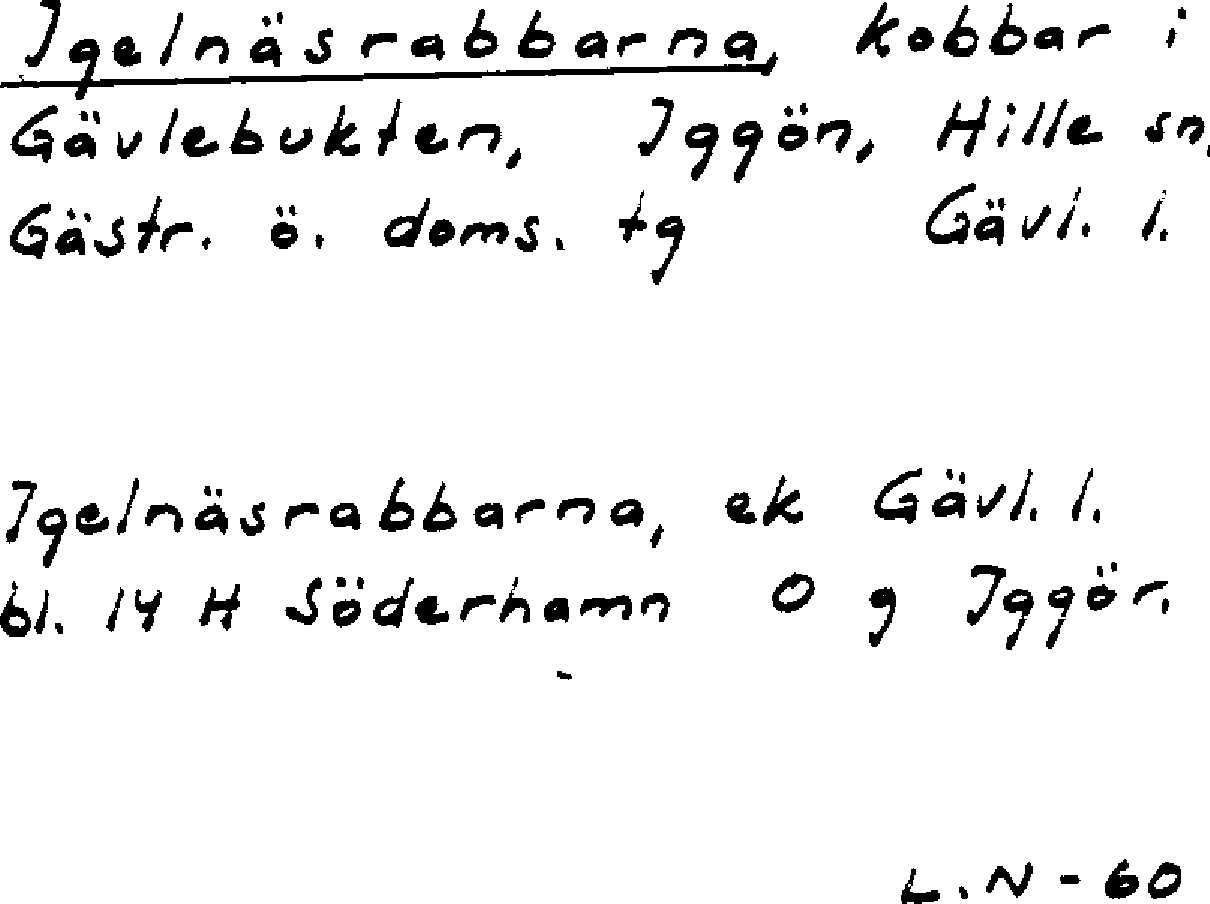 Igelnäsrabbarna, kobbar i
Gävlebukten, Iggön, Hille sn,
Gästr. ö. doms. tg Gävl. l.
Igelnäsrabbarna, ek Gävl. l.
bl. 14 H Söderhamn O g Iggör.
L.N-60